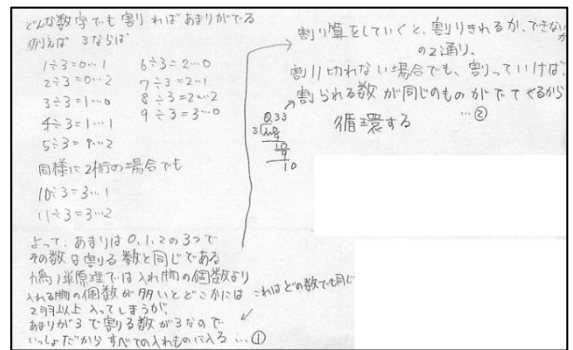 どんな数字でも割ればあまりがでる
例えば 3ならば
1÷3=0…1 6÷3=2…0
2÷3=0…2 7÷3=2…1
3÷3=1…0 8÷3=2…2
4÷3=1…1 9÷3=3…0
5÷3=1…2
同様に2桁の場合でも
10÷3=3…1
11÷3=3…2
よって、あまりは0,1,2の3つで
その数は割る数と同じである
鳩ノ巣原理では入れ物の個数より
入れる物の個数が多いとどこかには
2羽以上入ってしまうが、
あまりが3で割る数が3なので
いっしょだからすべての入れものに入る …①
これはどの数でも同じ
割り算をしていくと、割りきれるか、できないか
の2通り。
割り切れない場合でも、割っていけば、
割られる数が同じのものがでてくるから
…②
循環する
0.33
3
10